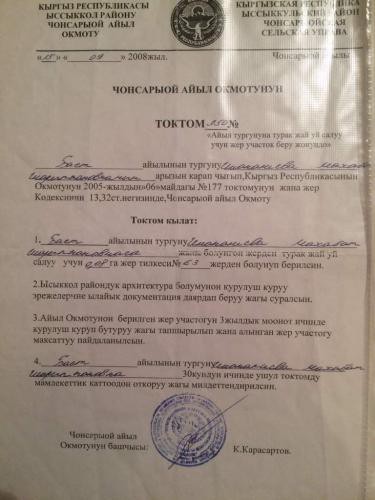 КЫРГЫЗ РЕСПУБЛИКАСЫ
ЫССЫККОЛ РАЙОНУ
ЧОНСАРЫОЙ АЙЫЛ
ОКМОТУ
КЫРГЫЗСКАЯ РЕСПУБЛИКА
ЫССЫККУЛЬСКИЙ РАЙОН
ЧОНСАРЫОЙСКАЯ
СЕЛЬСКАЯ УПРАВА
«15» « 09 » 2008жыл.
Чонсарыой айылы
ЧОНСАРЫОЙ АЙЫЛ ОКМОТУНУН
ТОКТОМ 250 №
«Айыл тургунуна турак жай уй салуу
учун жер участок беру жонундо»
Бает айылынын тургуну
арызын карап чыгып,Кыргыз Республикасынын
Окмотунун 2005-жылдын«06»майдагы №177 токтомунун жана жер
Кодексинин 13,32ст.негизинде,Чонсарыой айыл Окмоту
Токтом кылат:
1. Бает айылынын тургуну
жаны болунгон жерден турак жай уй
салуу учун 0,08 га жер тилкеси№ 63 жерден болунуп берилсин.
2.Ысыккол райондук архитектура болумунон курулуш куруу
эрежелерине ылайык документация даярдап беруу жагы суралсын.
3.Айыл Окмотунон берилген жер участогун 3жылдык моонот ичинде
курулуш куруп бутуруу жагы тапшырылып жана алынган жер участогу
максаттуу пайдаланылсын.
4. Бает айылынын тургуну
30кундун ичинде ушул токтомду
мамлекеттик каттоодон откоруу жагы милдеттендирилсин.
Чонсарыой айыл
Окмотунун башчысы:
К.Карасартов.